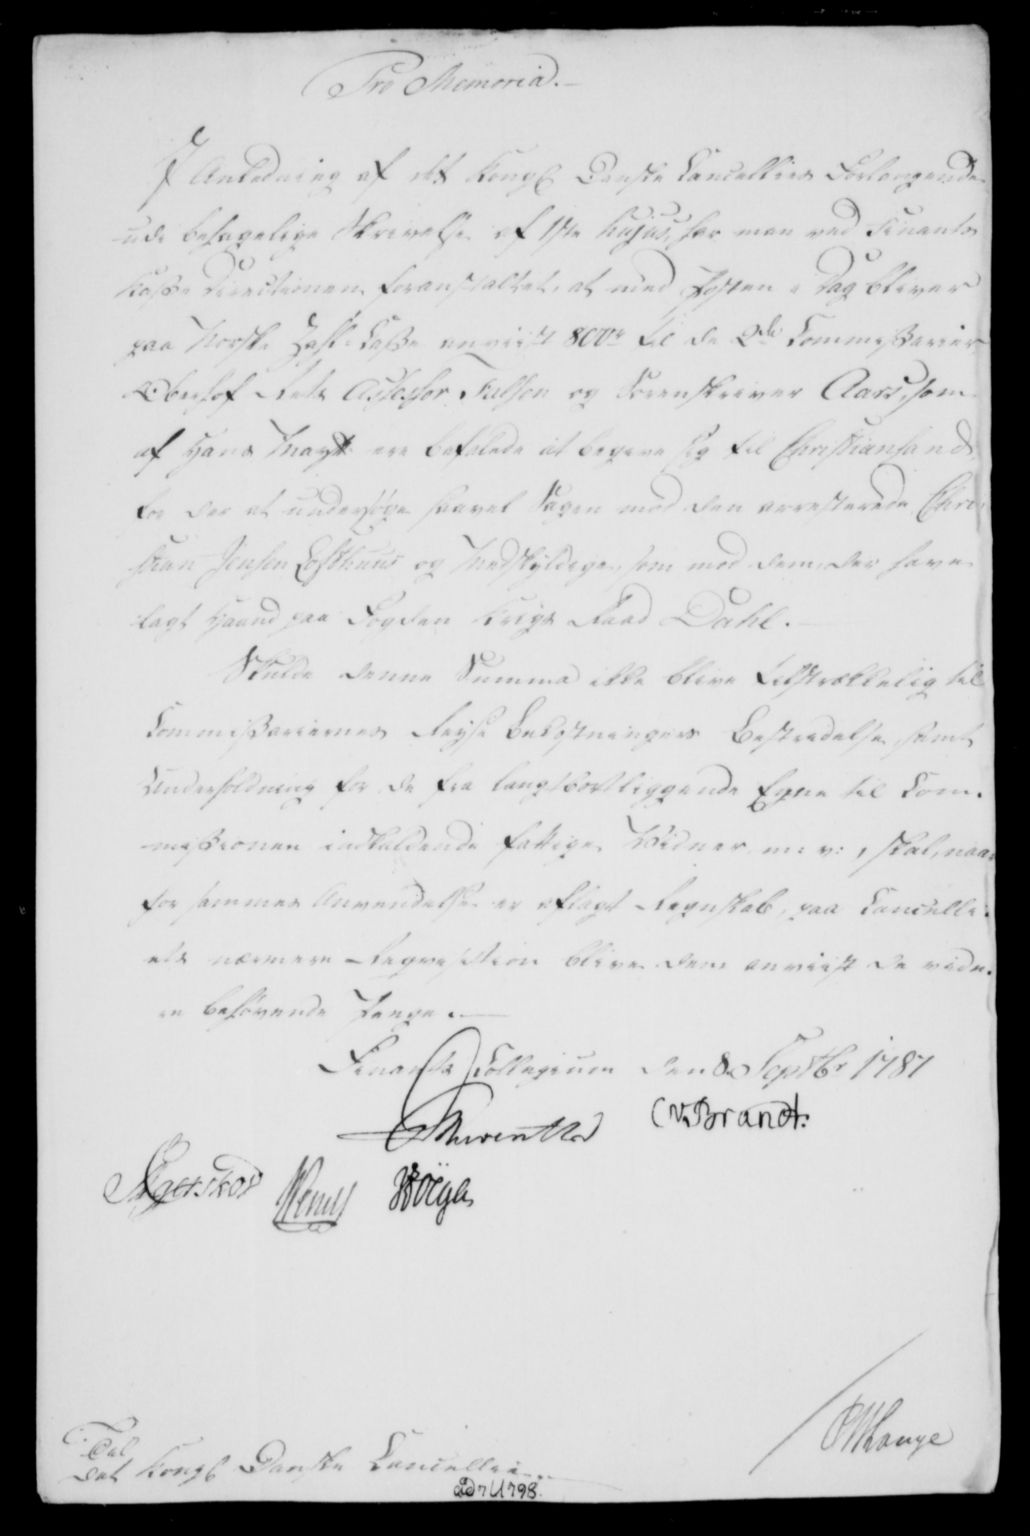 Pro Memoria.
I Anledning af det Kongl Danske Cancellies Forlangende
udi behagelige Skrivelse af 1ste hujus, har man ved Finants
Kasse Directionen foranstaltet, at med Posten i Dag bliver
paa Norske Zahl-Casse anviist 800 til de 2de Commissarier
Oberhof-Rets Assessor Falsen og Sorenskriver Aars, som
af Hans Mayt ere befalede at begive sig til Christiansand,
for der at undersøge saavel Sagen mod den arresterede Chri-
stian Jensen Lofthuus og Medskyldige, som mod dem, der have
lagt Haand paa Fogden Krigs Raad Dahl.
Skulde denne Summa ikke blive tilstrækkelig til
Commissariernes Reyse Bekostningers Bestridelse, samt
Underholdning for de fra langtbortliggende Egne til Com-
missionen indkaldende fattige Vidner m: v:, skal, naar
for sammes Anvendelse er aflagt Regnskab, paa Cancelli-
ets nærmere Requisition blive dem anviist de vide-
re behøvende Penge.
Finants Collegium den 8 Septbr 1787
C v. Brandt.
Til
Det Kongl Danske Cancellie.